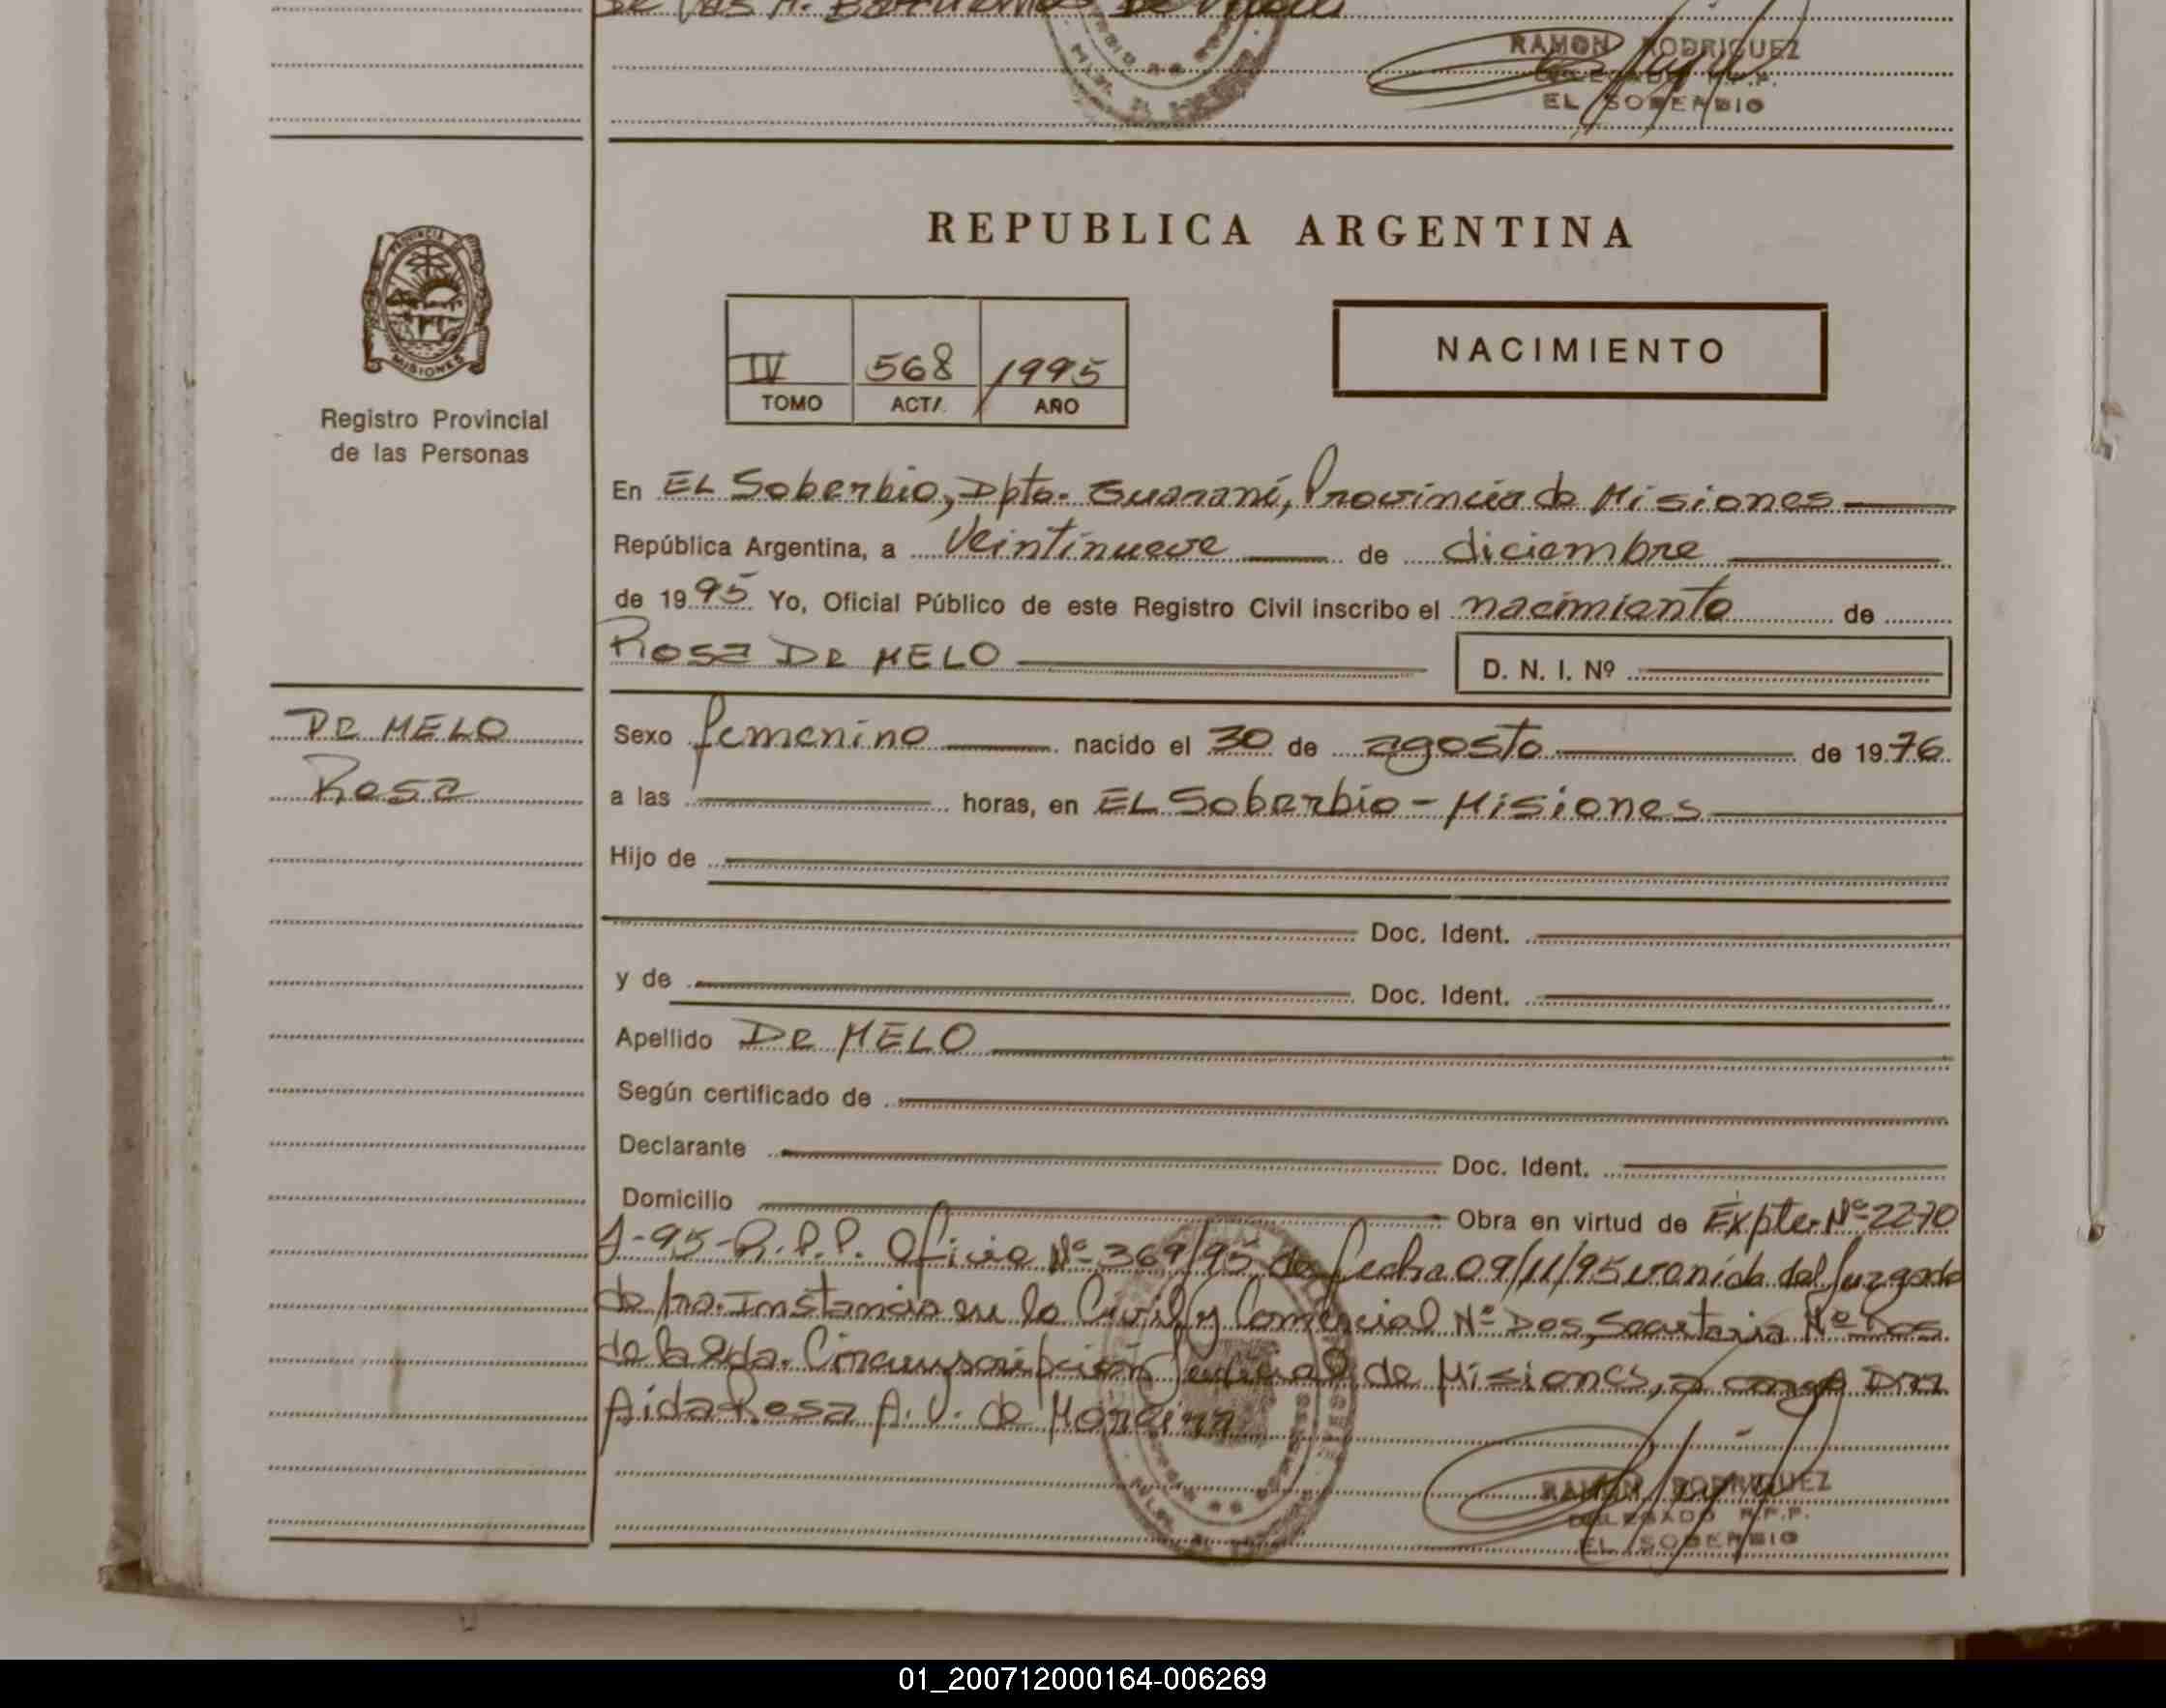 RAMON RODRIGUEZ
EL SOBERBIO
REPUBLICA ARGENTINA
PROVINCIA DE
MISIONES
Registro Provincial
de las Personas
IV 568 1995
TOMO ACTA AÑO
NACIMIENTO
En EL Soberbio, Dpto. Guaraní, Provincia de Misiones
República Argentina, a Veintinueve de diciembre
de 1995 Yo, Oficial Público de este Registro Civil inscribo el nacimiento de
Rosa DE MELO D. N. I. Nº
DE MELO
Rosa
Sexo femenino nacido el 30 de agosto de 1976
a las horas, en EL Soberbio - Misiones
Hijo de
Doc. Ident.
y de Doc. Ident.
Apellido DE MELO
Según certificado de
Declarante Doc. Ident.
Domicilio Obra en virtud de Expte. Nº 2270
J-95-R.P.P. Oficio Nº 369/95 de fecha 09/11/95 venida del Juzgado
de 1ra. Instancia en lo Civil y Comercial Nº Dos, Secretaria Nº Dos
de la 2da. Circunscripción Judicial de Misiones, a cargo Dra
Aida Rosa A. V. de Moreira
RAMON RODRIGUEZ
DELEGADO R.P.P.
EL SOBERBIO
01_200712000164-006269